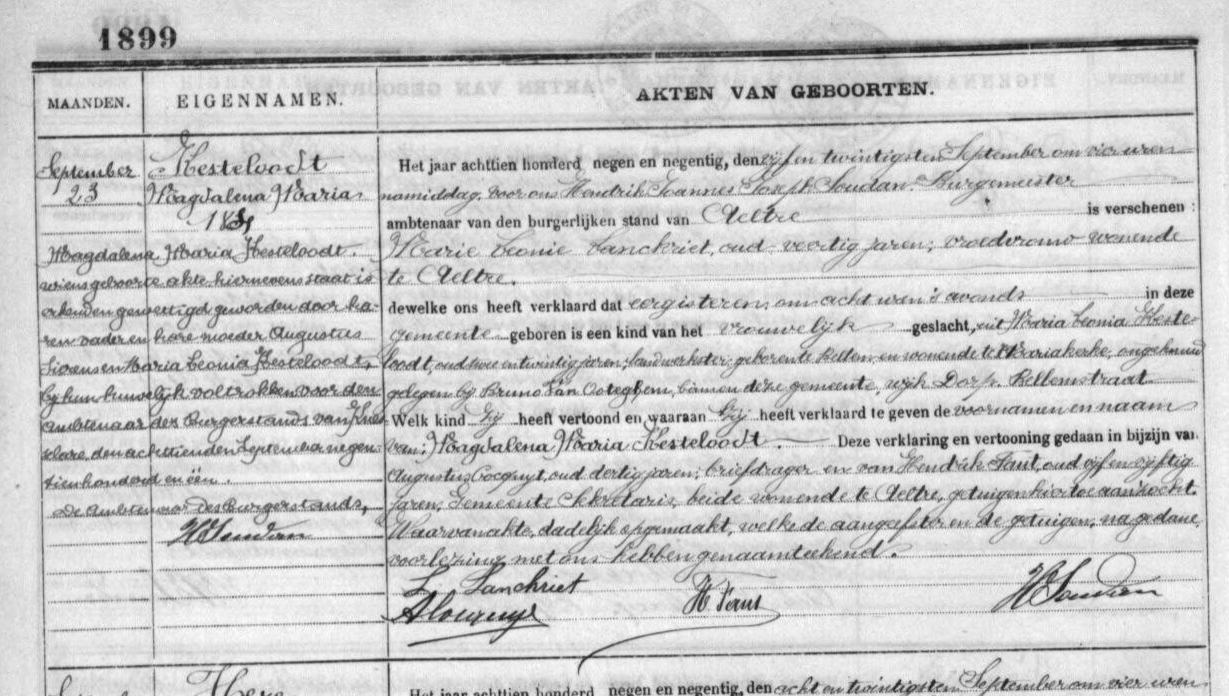 1899
MAANDEN.
EIGENNAMEN.
AKTEN VAN GEBOORTEN.
September
23
Kesteloodt
Magdalena Maria
Magdalena Maria Kesteloodt.
wiens geboorteakte hiernevens staat is
erkend en gewettigd geworden door ha-
ren vader en hare moeder Augustus
Sierens en Maria Leonia Kesteloodt,
by hun huwelijk voltrokken voor den
Ambtenaar des Burgerstands van
den achttienden September negen-
tienhonderd en één.
De Ambtenaar des Burgerstands,
HSoudan
Het jaar achttien honderd negen en negentig, den vijf en twintigsten September om vier uren
namiddag, voor ons Hendrik Joannes Joseph Soudan, Burgemeester
ambtenaar van den burgerlijken stand van Aeltre is verschenen :
Marie Leonie Lanckriet, oud veertig jaren, vroedvrouw wonende
te Aeltre.
dewelke ons heeft verklaard dat eergisteren, om acht uren 's avonds in deze
gemeente geboren is een kind van het vrouwelijk geslacht, uit Maria Leonia Keste-
loodt, oud twee en twintig jaren, landwerkster, geboren te Bellem, en wonende te Mariakerke, ongehuwd
gelegen bij Bruno Van Ooteghem, binnen deze gemeente, wijk Dorp, Bellemstraat
Welk kind zij heeft vertoond en waaraan zij heeft verklaard te geven de voornamen en naam
van: Magdalena Maria Kesteloodt. Deze verklaring en vertooning gedaan in bijzijn van
Augustus Cocquyt, oud dertig jaren, briefdrager en van Hendrik Faut, oud vijf en vijftig
jaren, Gemeente Sekretaris, beide wonende te Aeltre, getuigen hiertoe aanzocht.
Waarvan akte, dadelijk opgemaakt, welke de aangeefster en de getuigen, na gedane
voorlezing, met ons hebben genaamteekend.
L Lanchriet
H Faut
HSoudan
Het jaar achttien honderd negen en negentig, den acht en twintigsten September om vier uren